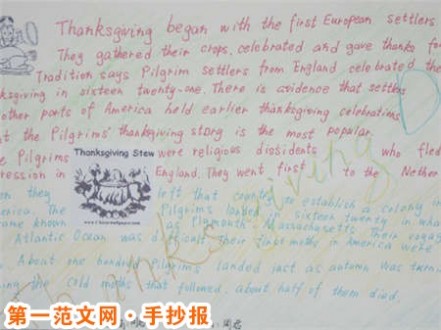 Thanksgiving began with the first European settlers
They gathered their crops, celebrated and gave thanks for
Tradition says Pilgrim settlers from England celebrated the
ksgiving in sixteen twenty-one. There is evidence that settlers
other parts of America held earlier thanksgiving celebrations
t the Pilgrims' thanksgiving story is the most popular.
e Pilgrims were religious dissidents who fled
ression in England. They went first to the Nether
Thanksgiving Stew
n they left that country to establish a colony in
erica. The Pilgrims landed in sixteen twenty in what
ame known as Plymouth, Massachusetts. Their voyage
Atlantic Ocean was difficult. Their first months in America were
About one hundred Pilgrims landed just as autumn was turning
ing the cold months that followed, about half of them died.
thanksgiving
第一范文网·手抄报